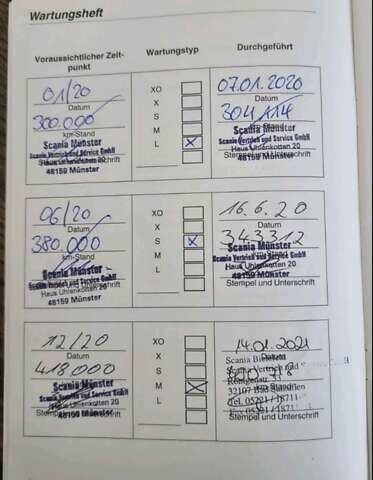 Wartungsheft
Voraussichtlicher Zeit-
punkt
Wartungstyp
Durchgeführt
01/20
Datum
300.000
km-Stand
Scania Münster
Scania Vertrieb und Service GmbH
Haus Uhlenkotten 20
48159 Münster
XO
X
S
M
L X
07.01.2020
Datum
304114
km-Stand
Scania Münster
Scania Vertrieb und Service GmbH
Haus Uhlenkotten 20
Stempel und Unterschrift
48159 Münster
06/20
Datum
380.000
km-Stand
Scania Münster
Scania Vertrieb und Service GmbH
Haus Uhlenkotten 20
48159 Münster
XO
X
S X
M
L
16.6.20
Datum
343312
Scania Münster
Scania Vertrieb und Service GmbH
Haus Uhlenkotten 20
48159 Münster
Stempel und Unterschrift
12/20
Datum
418000
km-Stand
Scania Münster
Scania Vertrieb und Service GmbH
Haus Uhlenkotten 20
48159 Münster
XO
X
S
M X
L
14.01.2021
Datum
Scania Bielefeld
Scania Vertrieb und
km-Stand
32107 Bad Salzuflen
Tel. 05221/18711
Stempel und Unterschrift